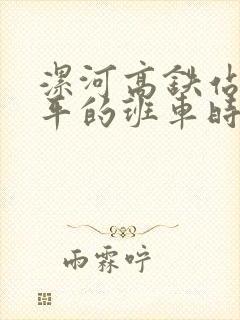 漯河高铁站
平的班车时
雨霖咛